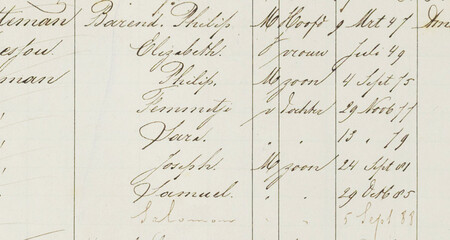 Barend Philip. M Hoofd 9 Mrt 47
Elizabeth. V vrouw Juli 49
man Philip. M zoon 4 Sept 75
" Femmetje v dochter 29 Nov 77
" Sara. " " 13 " 79
" Joseph. M zoon 24 Sept 81
" Samuel. " " 29 Octb 85
Salomon " " 5 Sept 88